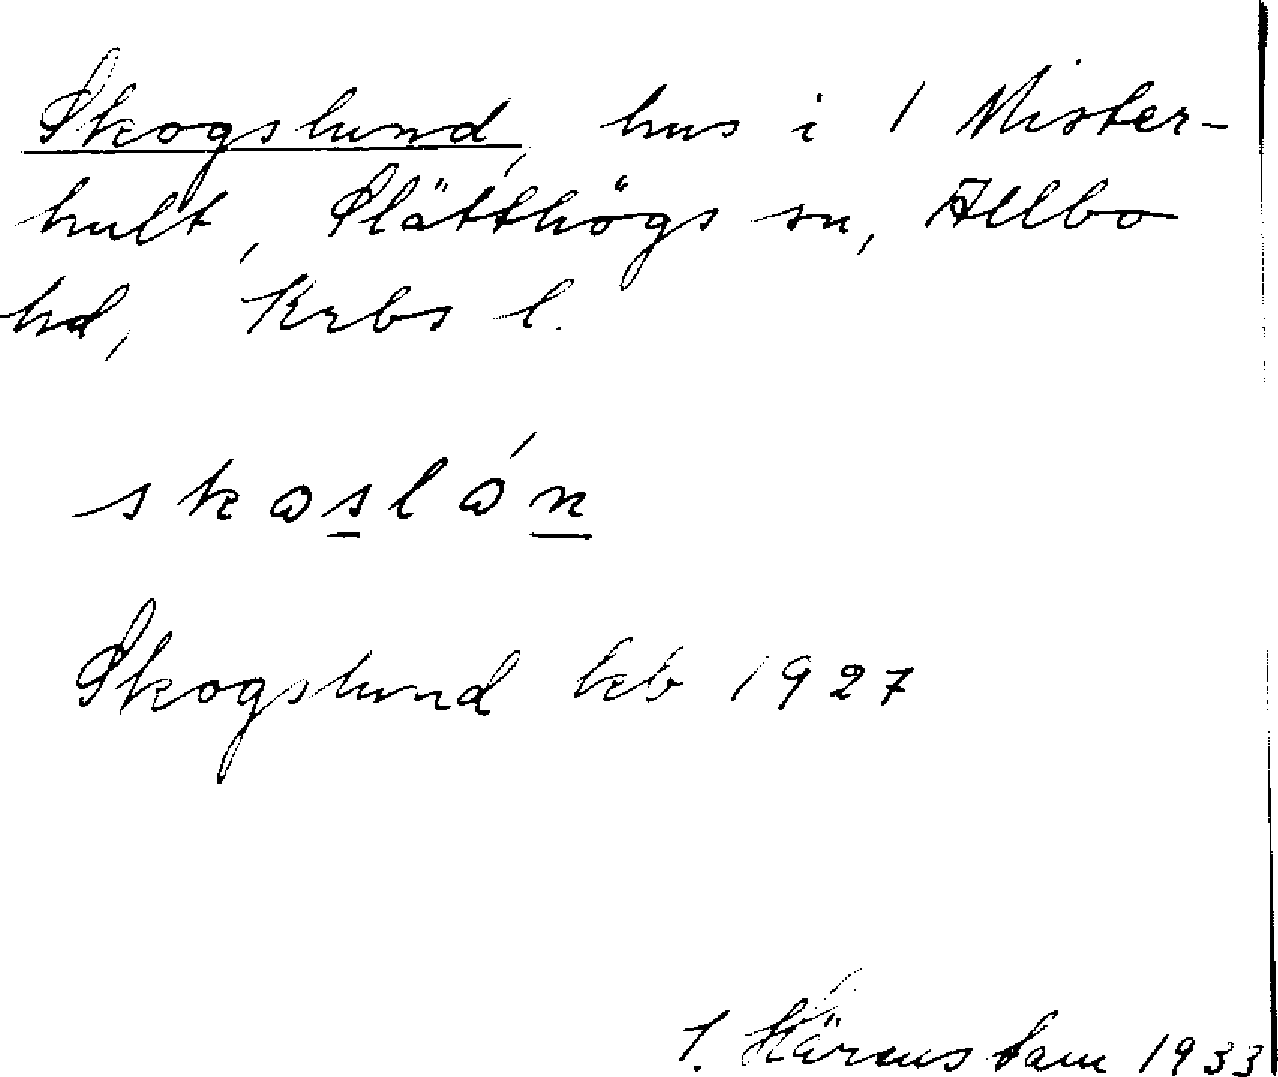 Skogslund, hus i 1 Mister-
hult, Slätthögs sn, Allbo
hd, Krbs l.
skaslón
Skogslund kb 1927
1933